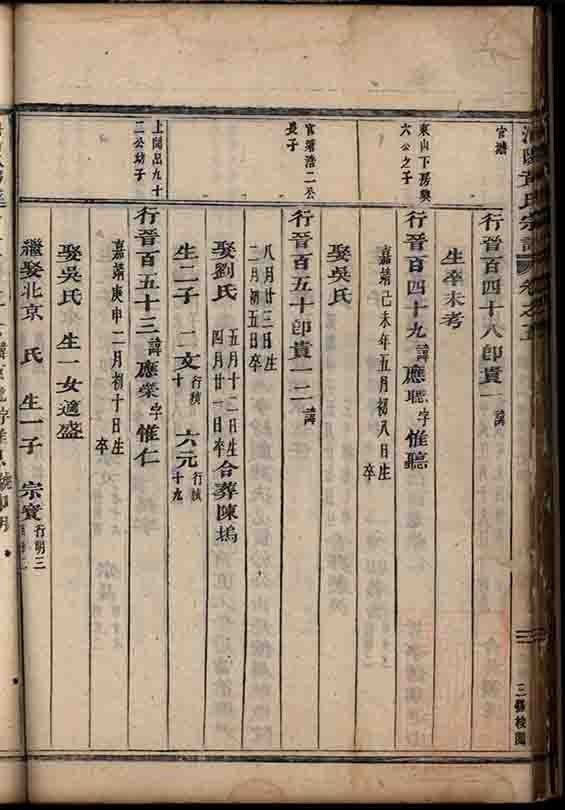 黃氏宗譜 卷之五
三錫校閱
官塘
行晉百四十八卽貴一 諱
生卒未考
東山下房興
六公之子
行晉百四十九 諱應聰 字惟聽
嘉靖己未年五月初八日生
卒
娶吳氏
官塘浩二公
長子
行晉百五十卽貴一二 諱
八月廿三日生
二月初五日卒
娶劉氏 五月十二日生
四月廿一日卒 合葬陳塢
生二子 二文 行棫
十 六元 行棫
十九
上閣出九十
二公幼子
行晉百五十三 諱應榮 字惟仁
嘉靖庚申二月初十日生
卒
娶吳氏 生一女適盛
繼娶北京 氏 生一子 宗寶 行明三